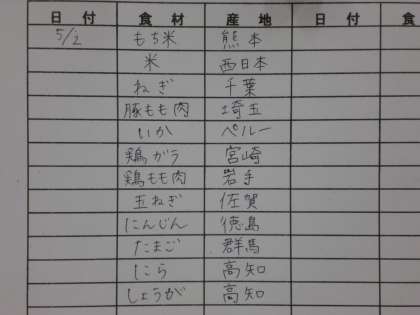 日付 食材 産地 日付 食
5/2 もち米 熊本
米 西日本
ねぎ 千葉
豚もも肉 埼玉
いか ペルー
鶏ガラ 宮崎
鶏もも肉 岩手
玉ねぎ 佐賀
にんじん 徳島
たまご 群馬
にら 高知
しょうが 高知